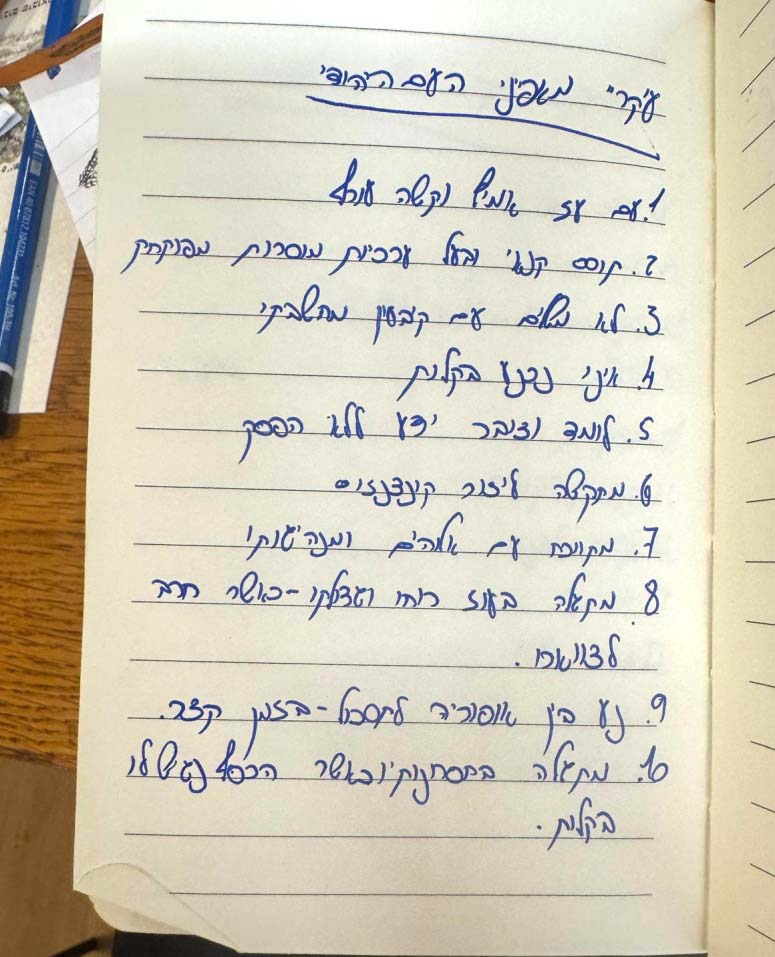 עיקרי מאפיני העם היהודי
1. עם עז אמיץ וקשה עורף
2. תוסס קנאי ובעל ערכיות מוסרות מפוקחת
3. לא משלים עם קיבעון מחשבתי
4. אינו נכנע בקלות
5. לומד וצובר ידע ללא הפסק
6. מתקשה ליצור קונצנזוס
7. מתווכח עם אלוהים ומנהיגותו
8. מתגלה בעוז רוחו וגדלותו - כאשר חרב
לצווארו.
9. נע בין אופוריה לתסכול - בזמן קצר.
10. מתגלה בנסחנותו כאשר הכסף נגיש לו
בקלות.